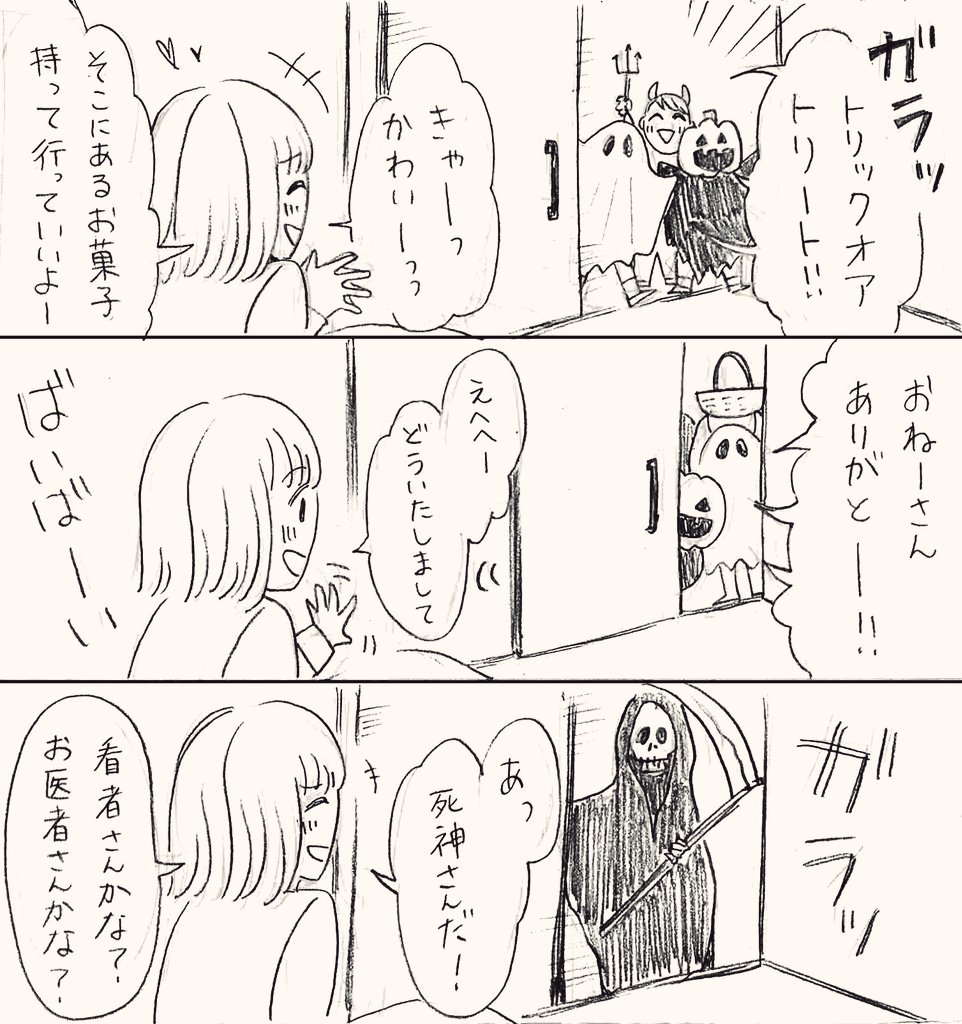 ガラッ
トリックオア
トリート!!
きゃーっ
かわいーっっ
そこにあるお菓子
持って行っていいよー
おねーさん
ありがとー!!
えへへー
どういたしまして
ばいばーい
ガラッ
あっ
死神さんだ!
看者さんかな?
お医者さんかな?